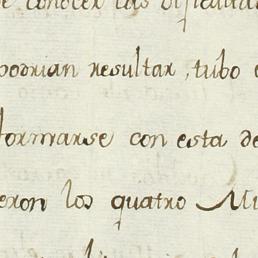 e conocer las dificulta
podrian resultar, tubo
formarse con esta de
eron los quatro Mi